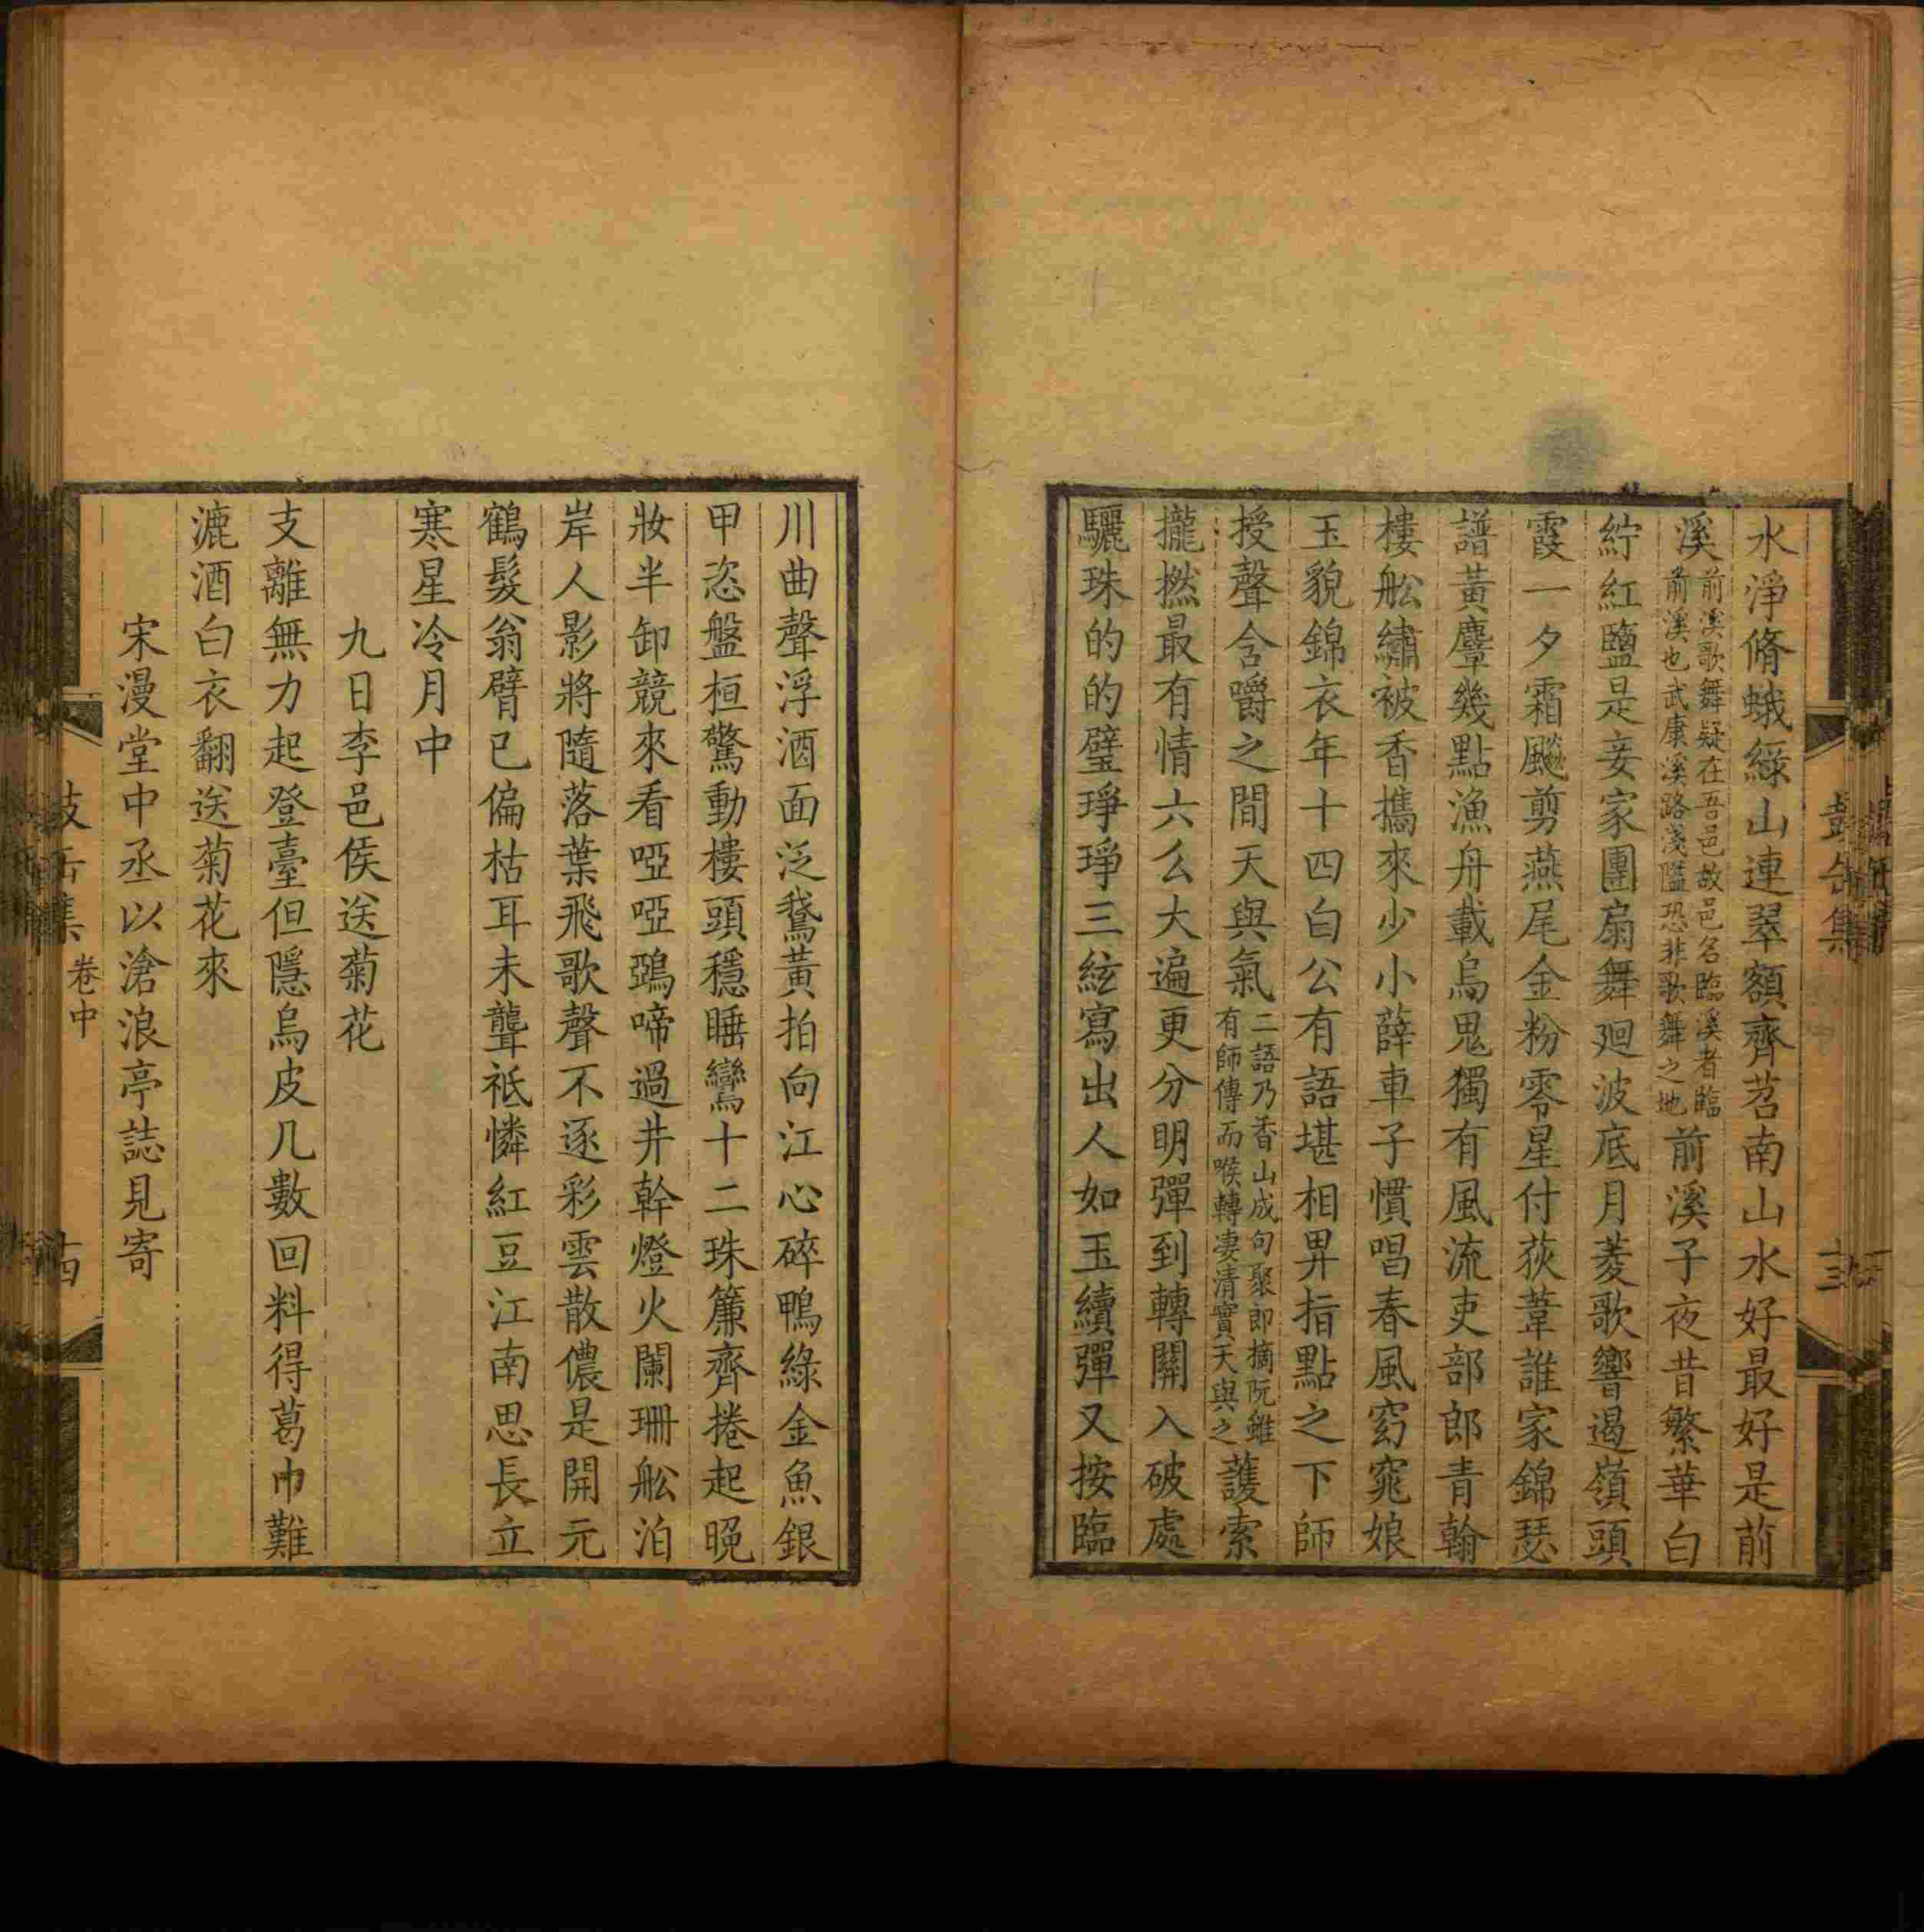 水淨脩蛾綠山連翠額齊苕南山水好最好是前
溪前溪歌舞疑在吾邑故邑名臨溪者臨前溪也武康溪路淺隘恐非歌舞之地前溪子夜昔繁華白
紵紅鹽是妾家團扇舞迴波底月菱歌響遏嶺頭
霞一夕霜飈剪燕尾金粉零星付荻葦誰家錦瑟
譜黃麞幾點漁舟載烏鬼獨有風流吏部郎青翰
樓舩繡被香攜來少小薛車子慣唱春風窈窕娘
玉貌錦衣年十四白公有語堪相畀指點之下師
授聲含嚼之間天與氣二語乃香山成句聚即摘阮雖有師傳而喉轉淒清實天與之蒦索
攏撚最有情六么大遍更分明彈到轉關入破處
驪珠的的璧琤琤三絃寫出人如玉續彈又按臨
川曲聲浮酒面泛鵞黃拍向江心碎鴨綠金魚銀
甲恣盤桓驚動樓頭穩睡鸞十二珠簾齊捲起晚
妝半卸競來看啞啞鵶啼過井幹燈火闌珊舩泊
岸人影將隨落葉飛歌聲不逐彩雲散儂是開元
鶴髮翁臂已偏枯耳未聾祗憐紅豆江南思長立
寒星冷月中
九日李邑侯送菊花
支離無力起登臺但隱烏皮几數回料得葛巾難
漉酒白衣翻送菊花來
宋漫堂中丞以滄浪亭誌見寄
卷中